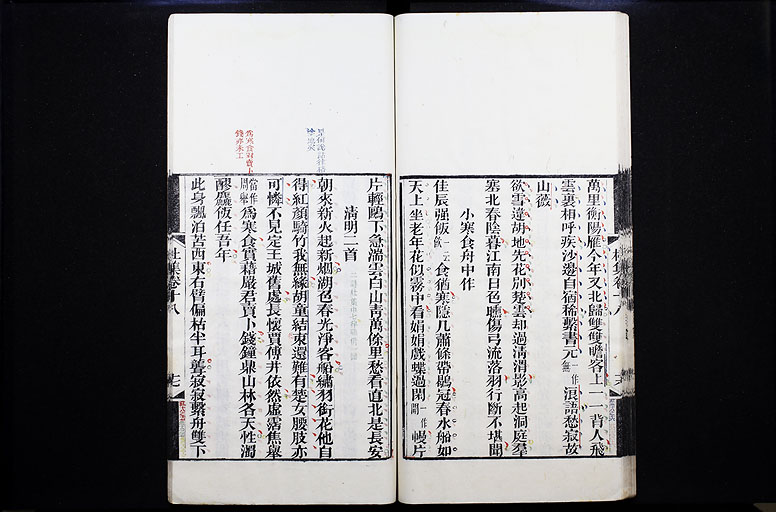 萬里衡陽雁今年又北歸雙雙瞻客上一一背人飛
雲裏相呼疾沙邊自宿稀繫書元一作無浪語愁寂故
山薇
欲雪違胡地先花別楚雲却過清渭影高起洞庭羣
塞北春陰暮江南日色曛傷弓流落羽行斷不堪聞
小寒食舟中作
佳辰强飯一云食猶寒隱几蕭條帶鶡冠春水船如
天上坐老年花似霧中看娟娟戲蝶過閑一作開幔片
片輕鷗下急湍雲白山青萬餘里愁看直北是長安
清明二首
朝來新火起新烟湖色春光淨客船繡羽銜花他自
得紅顏騎竹我無緣胡童結束還難有楚女腰肢亦
可憐不見定王城舊處長懷賈傅井依然虛霑焦舉
當作周舉爲寒食實藉嚴君賣卜錢鐘鼎山林各天性濁
醪麤飯任吾年
此身飄泊苦西東右臂偏枯半耳聾寂寂繫舟雙下
杜集卷十八